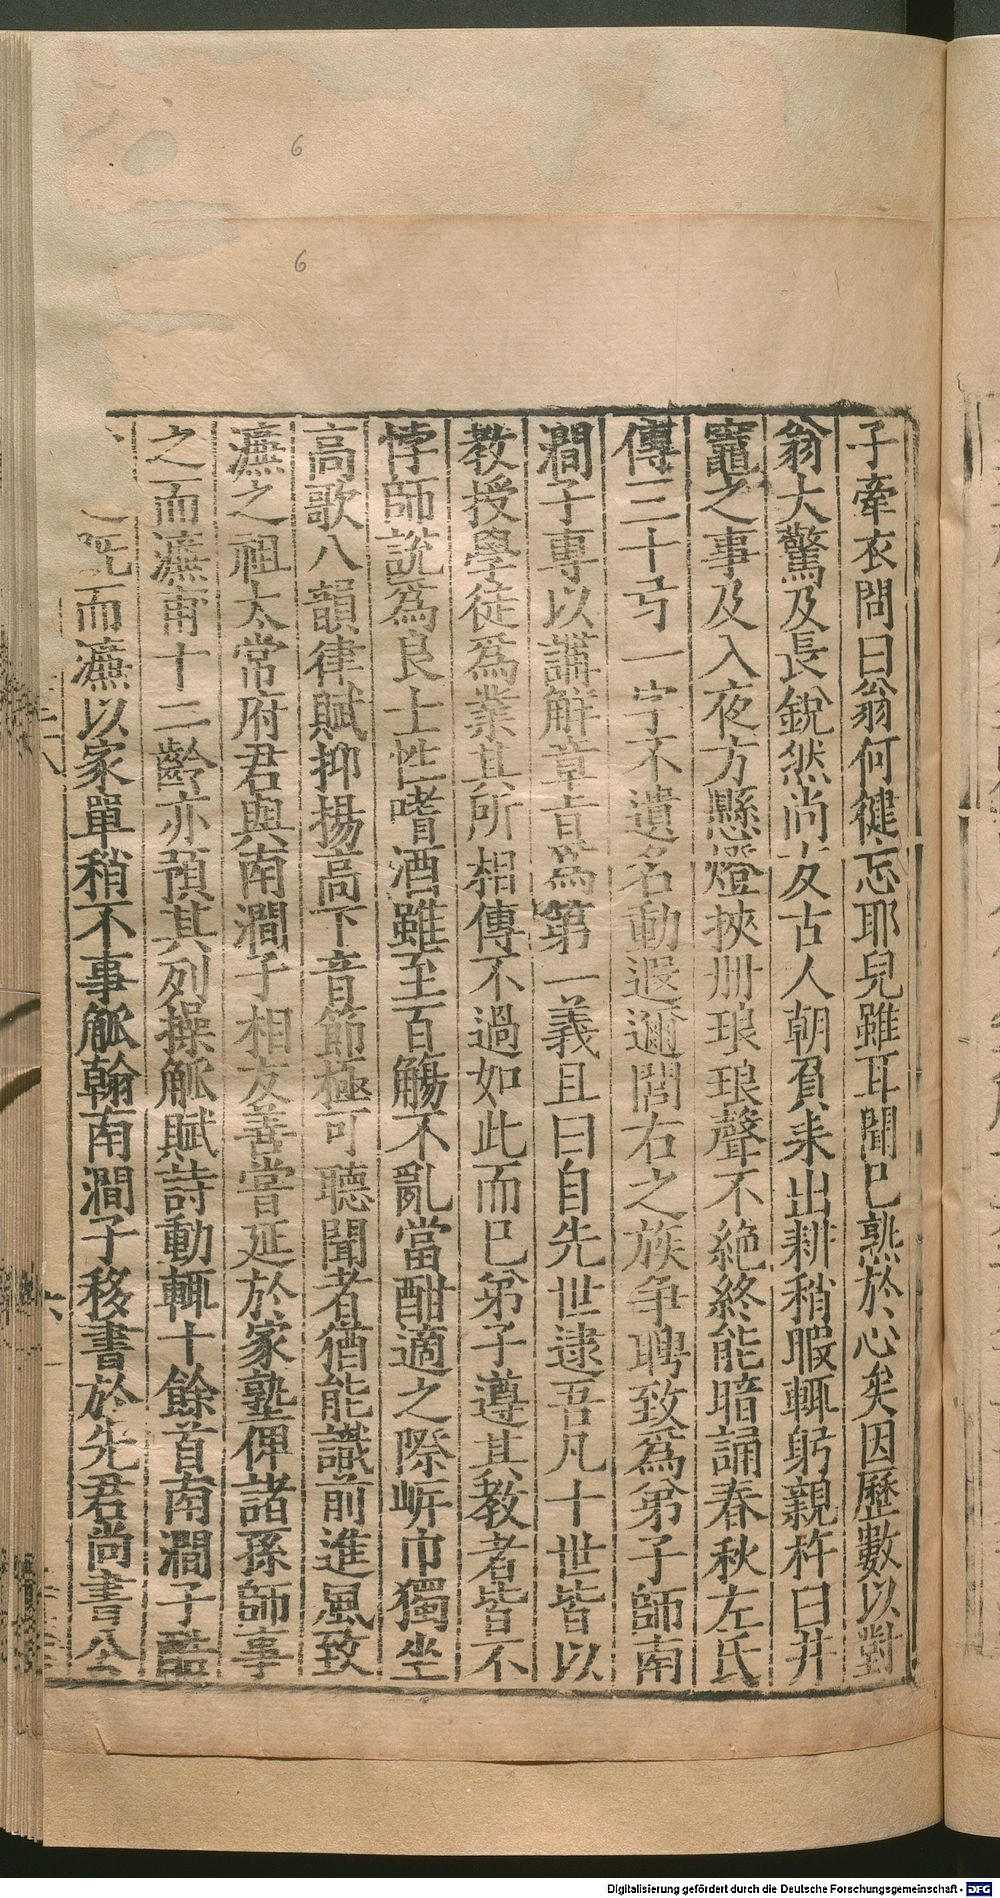 子牽衣問曰翁何健忘耶兒雖耳聞已熟於心矣因歷數以對
翁大驚及長銳然尚友古人朝負耒出耕稍暇輒躬親杵臼井
竈之事及入夜方懸燈挾冊琅琅聲不絶終能暗誦春秋左氏
傳三十号一字不遺名動遐邇閭右之族争聘致為弟子師南
澗子專以講解章旨為第一義且曰自先世逮吾凡十世皆以
教授學徒為業其所相傳不過如此而已弟子遵其教者皆不
悖師說為良士性嗜酒雖至百觴不亂當酣適之際岸巾獨坐
高歌八韻律賦抑揚高下音節極可聽聞者猶能識前進風致
濂之祖太常府君與南澗子相友善嘗延於家塾俾諸孫師事
之而濂甫十二齡亦預其列操觚賦詩動輒十餘首南澗子
既而濂以家單稍不事觚翰南澗子移書於先君尚書公
6
6
Digitalisierung gefördert durch die Deutsche Forschungsgemeinschaft - DFG